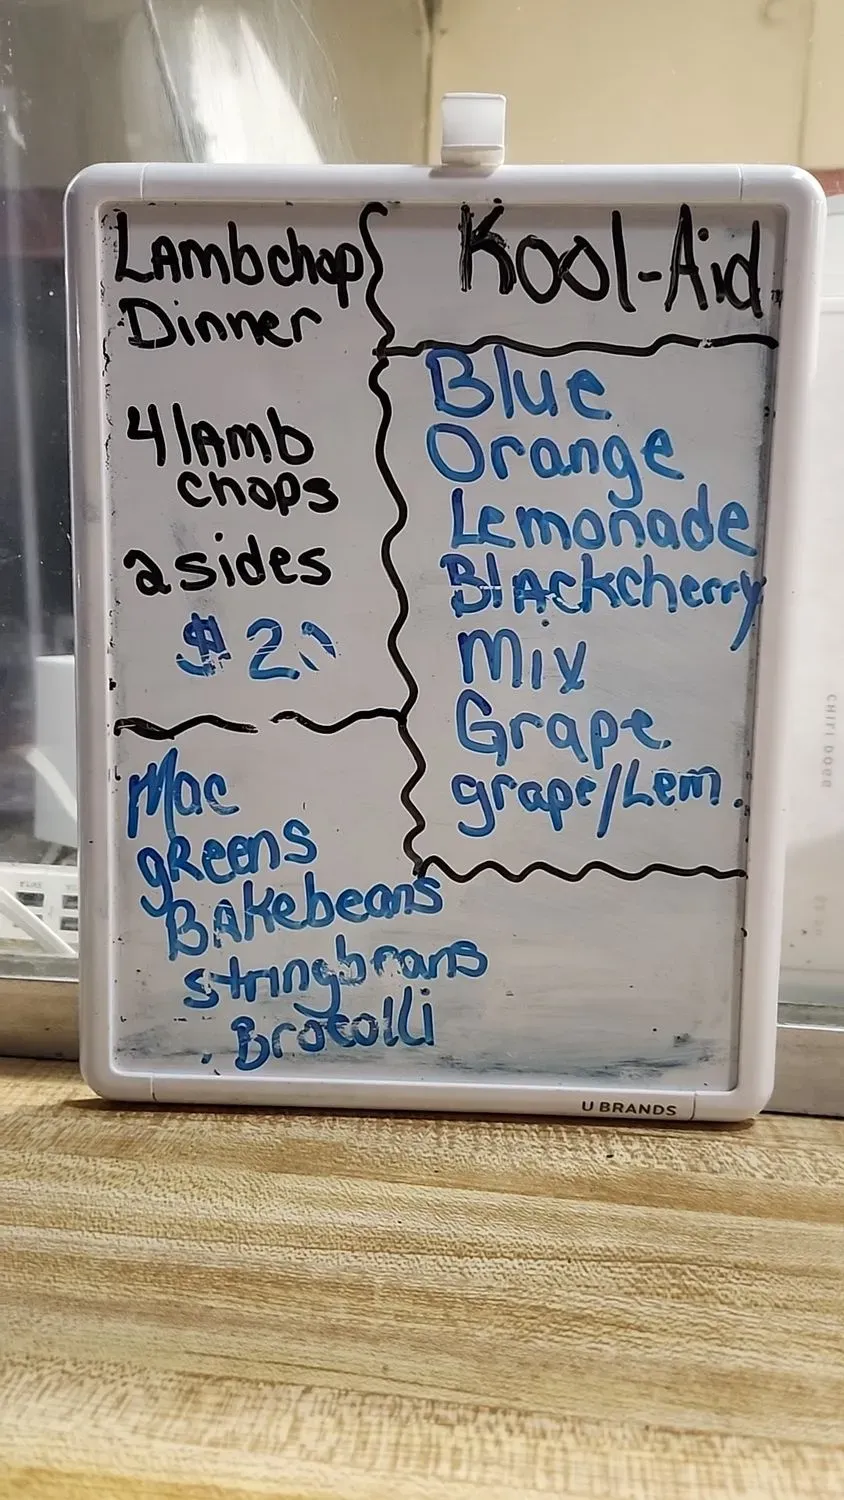 LAmbchop
Dinner
4 lAmb
chops
2 sides
Mac
gReens
BAKebeans
stringbrans
Brocolli
Kool-Aid
Blue
Orange
Lemonade
BlAckcherry
Mix
Grape
grape/Lem.
U BRANDS
CHILI DOGG